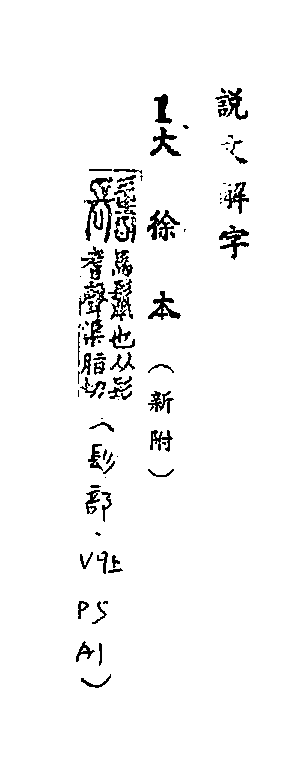 説文解字
1大徐本(新附)
馬鬣也从髟
耆聲渠脂切(髟部.V9上P5A1)